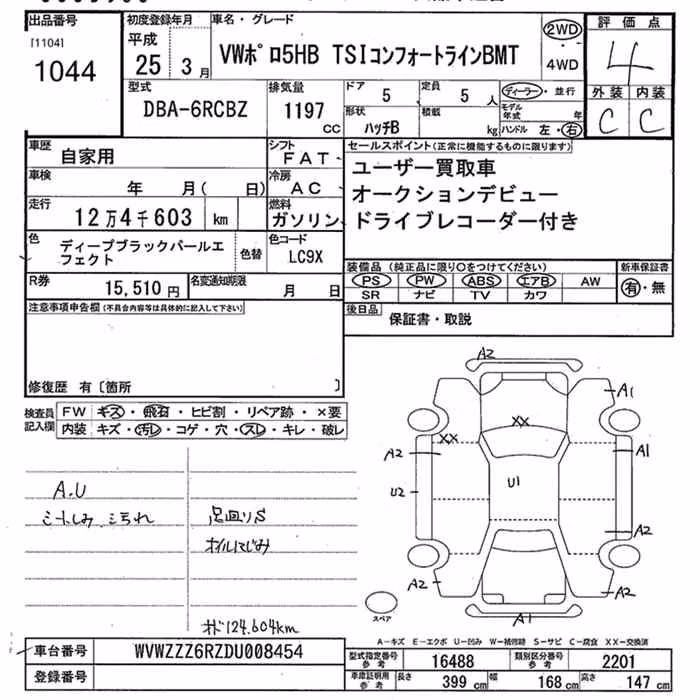 出品番号
[1104]
1044
初度登録年月
平成
25 3 月
車名・グレード
VWポロ5HB TSIコンフォートラインBMT
2WD
・
4WD
評価点
4
外装 内装
C C
型式
DBA-6RCBZ
排気量
1197
CC
ドア
5
定員
5 人
形状
ハッチB
積載
kg
ディーラー・並行
モデル年式 年
ハンドル 左・右
車歴
自家用
シフト
FAT
車検
年 月( 日)
冷房
AC
走行
12万4千603 km
燃料
ガソリン
色
ディープブラックパールエフェクト
色替
色コード
LC9X
R券
15,510 円
名変通知期限
月 日
セールスポイント(正常に機能するものに限ります)
ユーザー買取車
オークションデビュー
ドライブレコーダー付き
装備品 (純正品に限り○をつけてください)
PS PW ABS エアB AW
SR ナビ TV カワ
新車保証書
有・無
後日品
保証書・取説
注意事項申告欄(不具合内容等は具体的に記入して下さい)
修復歴 有〔箇所 〕
検査員
記入欄
FW キズ・飛石・ヒビ割・リペア跡・×要
内装 キズ・汚レ・コゲ・穴・スレ・キレ・破レ
A.U
シートしみ こちれ
足回りS
オイルにじみ
メーター
A2
A1
XX
XX
A2
A1
U2
U1
A2
A2
A2
A1
スペア
A-キズ E-エクボ U-凹み W-補修跡 S-サビ C-腐食 XX-交換済
車台番号
WVWZZZ6RZDU008454
登録番号
型式指定番号
参考
16488
類別区分番号
参考
2201
車庫証明用
参考
長さ
399 cm
幅
168 cm
高さ
147 cm